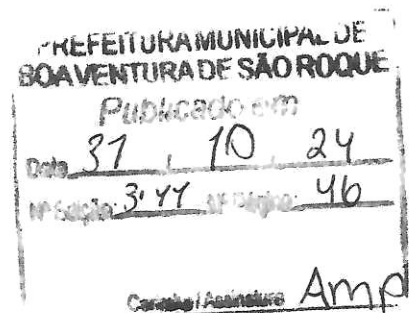 PREFEITURA MUNICIPAL DE
BOA VENTURA DE SÃO ROQUE
Publicado em
Data 31 / 10 / 24
Nº Edição: Nº Página: 46
Carimbo / Assinatura Amp